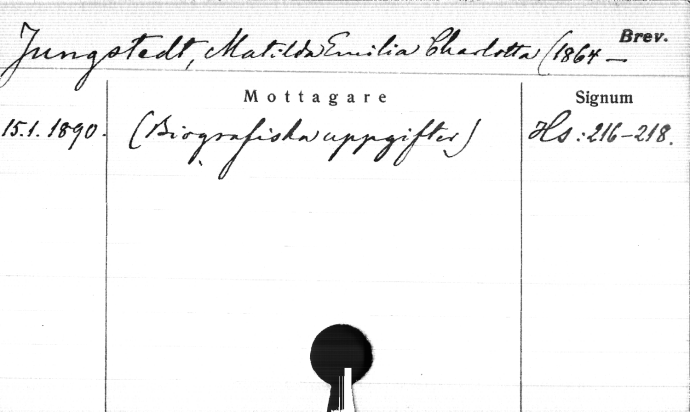 Brev.
Jungstedt, Matilda Emilia Charlotta (1864 –
Mottagare Signum
15.1.1890. (Biografiska uppgifter) Hs: 216–218.